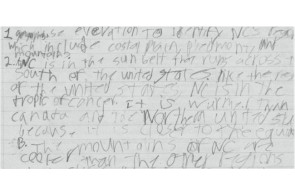 1. use elevation to identify NCs regi
which include costal plain, piedmont, and
mountains.
2. A NC is in the sun belt that runs across t
south of the united states. like the res
of the united states NC is in the
tropic of cancer. it is warmer than
canada and the Northern united sta
becaus. it is closer to the equat
B. The mountains of NC are
cooler than the other regions